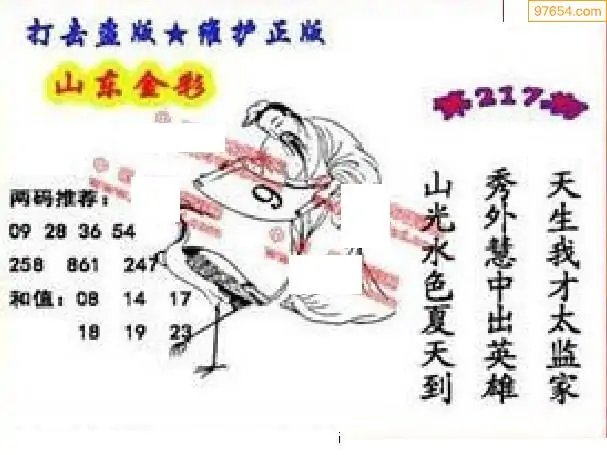 97654.com
打击盗版★维护正版
山东金彩
217
两码推荐:
09 28 36 54
258 861 247
和值: 08 14 17
18 19 23
9
天生我才太监家
秀外慧中出英雄
山光水色夏天到